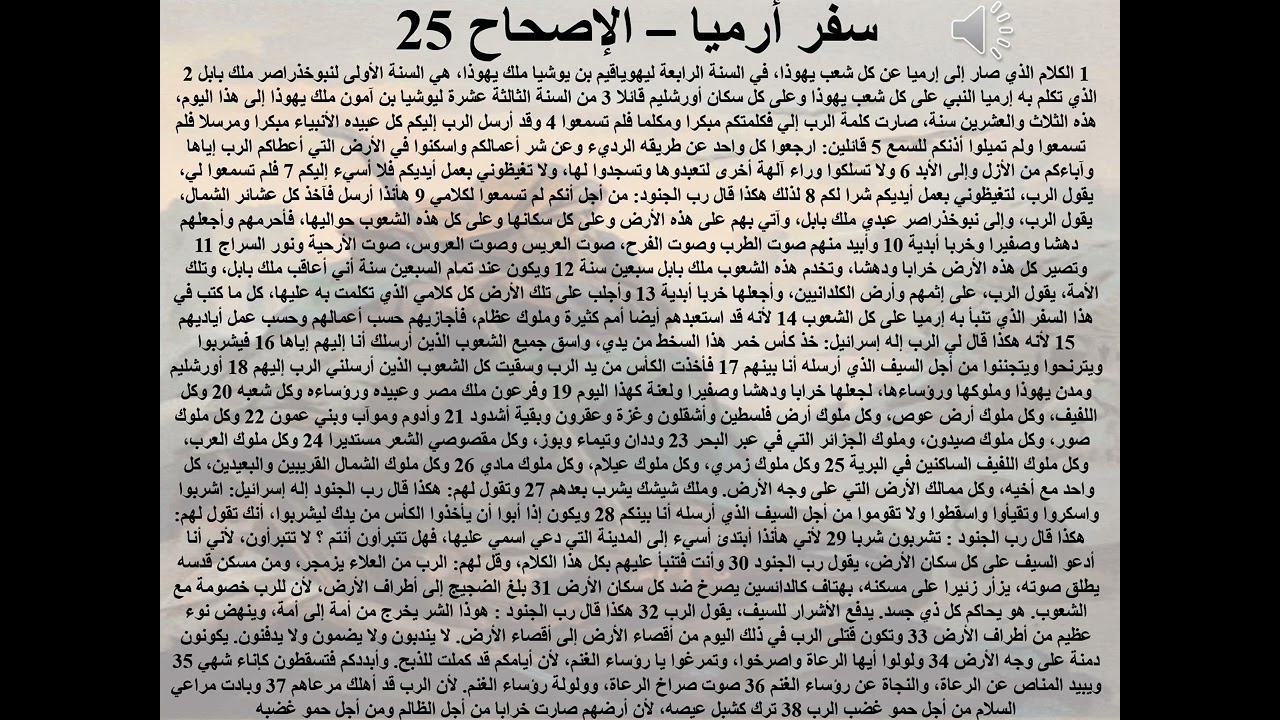 سفر أرميا – الإصحاح 25
1 الكلام الذي صار إلى إرميا عن كل شعب يهوذا، في السنة الرابعة ليهوياقيم بن يوشيا ملك يهوذا، هي السنة الأولى لنبوخذراصر ملك بابل 2
الذي تكلم به إرميا النبي على كل شعب يهوذا وعلى كل سكان أورشليم قائلا 3 من السنة الثالثة عشرة ليوشيا بن آمون ملك يهوذا إلى هذا اليوم،
هذه الثلاث والعشرين سنة، صارت كلمة الرب إلي فكلمتكم مبكرا ومكلما فلم تسمعوا 4 وقد أرسل الرب إليكم كل عبيده الأنبياء مبكرا ومرسلا فلم
تسمعوا ولم تميلوا أذنكم للسمع 5 قائلين: ارجعوا كل واحد عن طريقه الرديء وعن شر أعمالكم واسكنوا في الأرض التي أعطاكم الرب إياها
وآباءكم من الأزل وإلى الأبد 6 ولا تسلكوا وراء آلهة أخرى لتعبدوها وتسجدوا لها، ولا تغيظوني بعمل أيديكم فلا أسيء إليكم 7 فلم تسمعوا لي،
يقول الرب، لتغيظوني بعمل أيديكم شرا لكم 8 لذلك هكذا قال رب الجنود: من أجل أنكم لم تسمعوا لكلامي 9 هأنذا أرسل فآخذ كل عشائر الشمال،
يقول الرب، وإلى نبوخذراصر عبدي ملك بابل، وآتي بهم على هذه الأرض وعلى كل سكانها وعلى كل هذه الشعوب حواليها، فأحرمهم وأجعلهم
دهشا وصفيرا وخربا أبدية 10 وأبيد منهم صوت الطرب وصوت الفرح، صوت العريس وصوت العروس، صوت الأرحية ونور السراج 11
وتصير كل هذه الأرض خرابا ودهشا، وتخدم هذه الشعوب ملك بابل سبعين سنة 12 ويكون عند تمام السبعين سنة أني أعاقب ملك بابل، وتلك
الأمة، يقول الرب، على إثمهم وأرض الكلدانيين، وأجعلها خربا أبدية 13 وأجلب على تلك الأرض كل كلامي الذي تكلمت به عليها، كل ما كتب في
هذا السفر الذي تنبأ به إرميا على كل الشعوب 14 لأنه قد استعبدهم أيضا أمم كثيرة وملوك عظام، فأجازيهم حسب أعمالهم وحسب عمل أياديهم
15 لأنه هكذا قال لي الرب إله إسرائيل: خذ كأس خمر هذا السخط من يدي، واسق جميع الشعوب الذين أرسلك أنا إليهم إياها 16 فيشربوا
ويترنحوا ويتجننوا من أجل السيف الذي أرسله أنا بينهم 17 فأخذت الكأس من يد الرب وسقيت كل الشعوب الذين أرسلني الرب إليهم 18 أورشليم
ومدن يهوذا وملوكها ورؤساءها، لجعلها خرابا ودهشا وصفيرا ولعنة كهذا اليوم 19 وفرعون ملك مصر وعبيده ورؤساءه وكل شعبه 20 وكل
اللفيف، وكل ملوك أرض عوص، وكل ملوك أرض فلسطين وأشقلون وغزة وعقرون وبقية أشدود 21 وأدوم وموآب وبني عمون 22 وكل ملوك
صور، وكل ملوك صيدون، وملوك الجزائر التي في عبر البحر 23 وددان وتيماء وبوز، وكل مقصوصي الشعر مستديرا 24 وكل ملوك العرب،
وكل ملوك اللفيف الساكنين في البرية 25 وكل ملوك زمري، وكل ملوك عيلام، وكل ملوك مادي 26 وكل ملوك الشمال القريبين والبعيدين، كل
واحد مع أخيه، وكل ممالك الأرض التي على وجه الأرض. وملك شيشك يشرب بعدهم 27 وتقول لهم: هكذا قال رب الجنود إله إسرائيل: اشربوا
واسكروا وتقيأوا واسقطوا ولا تقوموا من أجل السيف الذي أرسله أنا بينكم 28 ويكون إذا أبوا أن يأخذوا الكأس من يدك ليشربوا، أنك تقول لهم:
هكذا قال رب الجنود : تشربون شربا 29 لأني هأنذا أبتدئ أسيء إلى المدينة التي دعي اسمي عليها، فهل تتبرأون أنتم ؟ لا تتبرأون، لأني أنا
أدعو السيف على كل سكان الأرض، يقول رب الجنود 30 وأنت فتنبأ عليهم بكل هذا الكلام، وقل لهم: الرب من العلاء يزمجر، ومن مسكن قدسه
يطلق صوته، يزأر زئيرا على مسكنه، بهتاف كالدائسين يصرخ ضد كل سكان الأرض 31 بلغ الضجيج إلى أطراف الأرض، لأن للرب خصومة مع
الشعوب. هو يحاكم كل ذي جسد. يدفع الأشرار للسيف، يقول الرب 32 هكذا قال رب الجنود : هوذا الشر يخرج من أمة إلى أمة، وينهض نوء
عظيم من أطراف الأرض 33 وتكون قتلى الرب في ذلك اليوم من أقصاء الأرض إلى أقصاء الأرض. لا يندبون ولا يضمون ولا يدفنون. يكونون
دمنة على وجه الأرض 34 ولولوا أيها الرعاة واصرخوا، وتمرغوا يا رؤساء الغنم، لأن أيامكم قد كملت للذبح. وأبددكم فتسقطون كإناء شهي 35
ويبيد المناص عن الرعاة، والنجاة عن رؤساء الغنم 36 صوت صراخ الرعاة، وولولة رؤساء الغنم. لأن الرب قد أهلك مرعاهم 37 وبادت مراعي
السلام من أجل حمو غضب الرب 38 ترك كشبل عيصه، لأن أرضهم صارت خرابا من أجل الظالم ومن أجل حمو غضبه